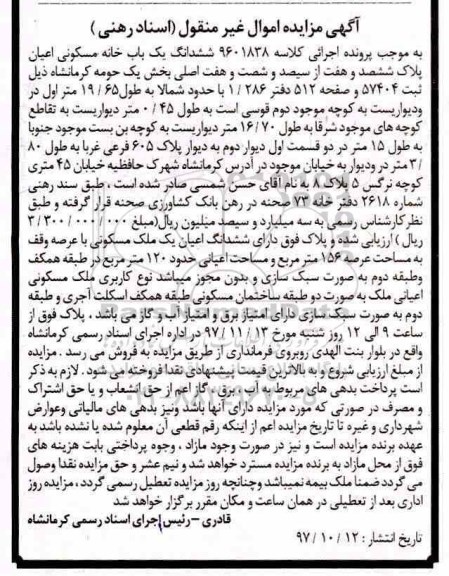 آگهی مزایده اموال غیر منقول (اسناد رهنی)
به موجب پرونده اجرائی کلاسه ۹۶۰۱۸۳۸ ششدانگ یک باب خانه مسکونی اعیان
پلاک ششصد و هفت از سیصد و شصت و هفت اصلی بخش یک حومه کرمانشاه ذیل
ثبت ۵۷۴۰۴ و صفحه ۵۱۲ دفتر ۱/۲۸۶ با حدود شمالا به طول ۱۹/۶۵ متر اول در
ودیواریست به کوچه موجود دوم قوسی است به طول ۰/۴۵ متر دیواریست به تقاطع
کوچه های موجود شرقا به طول ۱۶/۷۰ متر دیواریست به کوچه بن بست موجود جنوبا
به طول ۱۵ متر در دو قسمت اول دیوار دوم به دیوار پلاک ۶۰۵ فرعی غربا به طول ۸۰
/۳ متر در ودیوار به خیابان موجود در آدرس کرمانشاه شهرک حافظیه خیابان ۴۵ متری
کوچه نرگس ۵ پلاک ۸ به نام آقای حسن شمسی صادر شده است ، طبق سند رهنی
شماره ۲۶۱۸ دفتر خانه ۷۳ صحنه در رهن بانک کشاورزی صحنه قرار گرفته و طبق
نظر کارشناس رسمی به سه میلیارد و سیصد میلیون ریال (مبلغ ۳/۳۰۰/۰۰۰/۰۰۰
ریال) ارزیابی شده و پلاک فوق دارای ششدانگ اعیان یک ملک مسکونی با عرصه وقف
به مساحت عرصه ۱۵۶ متر مربع و مساحت اعیانی حدود ۱۲۰ متر مربع در طبقه همکف
وطبقه دوم به صورت سبک سازی و بدون مجوز میباشد نوع کاربری ملک مسکونی
اعیانی ملک به صورت دو طبقه ساختمان مسکونی طبقه همکف اسکلت آجری و طبقه
دوم به صورت سبک سازی دارای امتیاز برق و امتیاز آب و گاز می باشد ، پلاک فوق از
ساعت ۹ الی ۱۲ روز شنبه مورخ ۹۷/۱۱/۱۳ در اداره اجرای اسناد رسمی کرمانشاه
واقع در بلوار بنت الهدی روبروی فرمانداری از طریق مزایده به فروش می رسد . مزایده
از مبلغ ارزیابی شروع و به بالاترین قیمت پیشنهادی نقدا فروخته می شود . لازم به ذکر
است پرداخت بدهی های مربوط به آب ، برق ، گاز اعم از حق انشعاب و یا حق اشتراک
و مصرف در صورتی که مورد مزایده دارای آنها باشد ونیز بدهی های مالیاتی وعوارض
شهرداری و غیره تا تاریخ مزایده اعم از اینکه رقم قطعی آن معلوم شده یا نشده باشد به
عهده برنده مزایده است و نیز در صورت وجود مازاد ، وجوه پرداختی بابت هزینه های
فوق از محل مازاد به برنده مزایده مسترد خواهد شد و نیم عشر و حق مزایده نقدا وصول
می گردد ضمنا ملک بیمه نمیباشد وچنانچه روز مزایده تعطیل رسمی گردد ، مزایده روز
اداری بعد از تعطیلی در همان ساعت و مکان مقرر برگزار خواهد شد
قادری – رئیس اجرای اسناد رسمی کرمانشاه
تاریخ انتشار : ۹۷/۱۰/۱۲